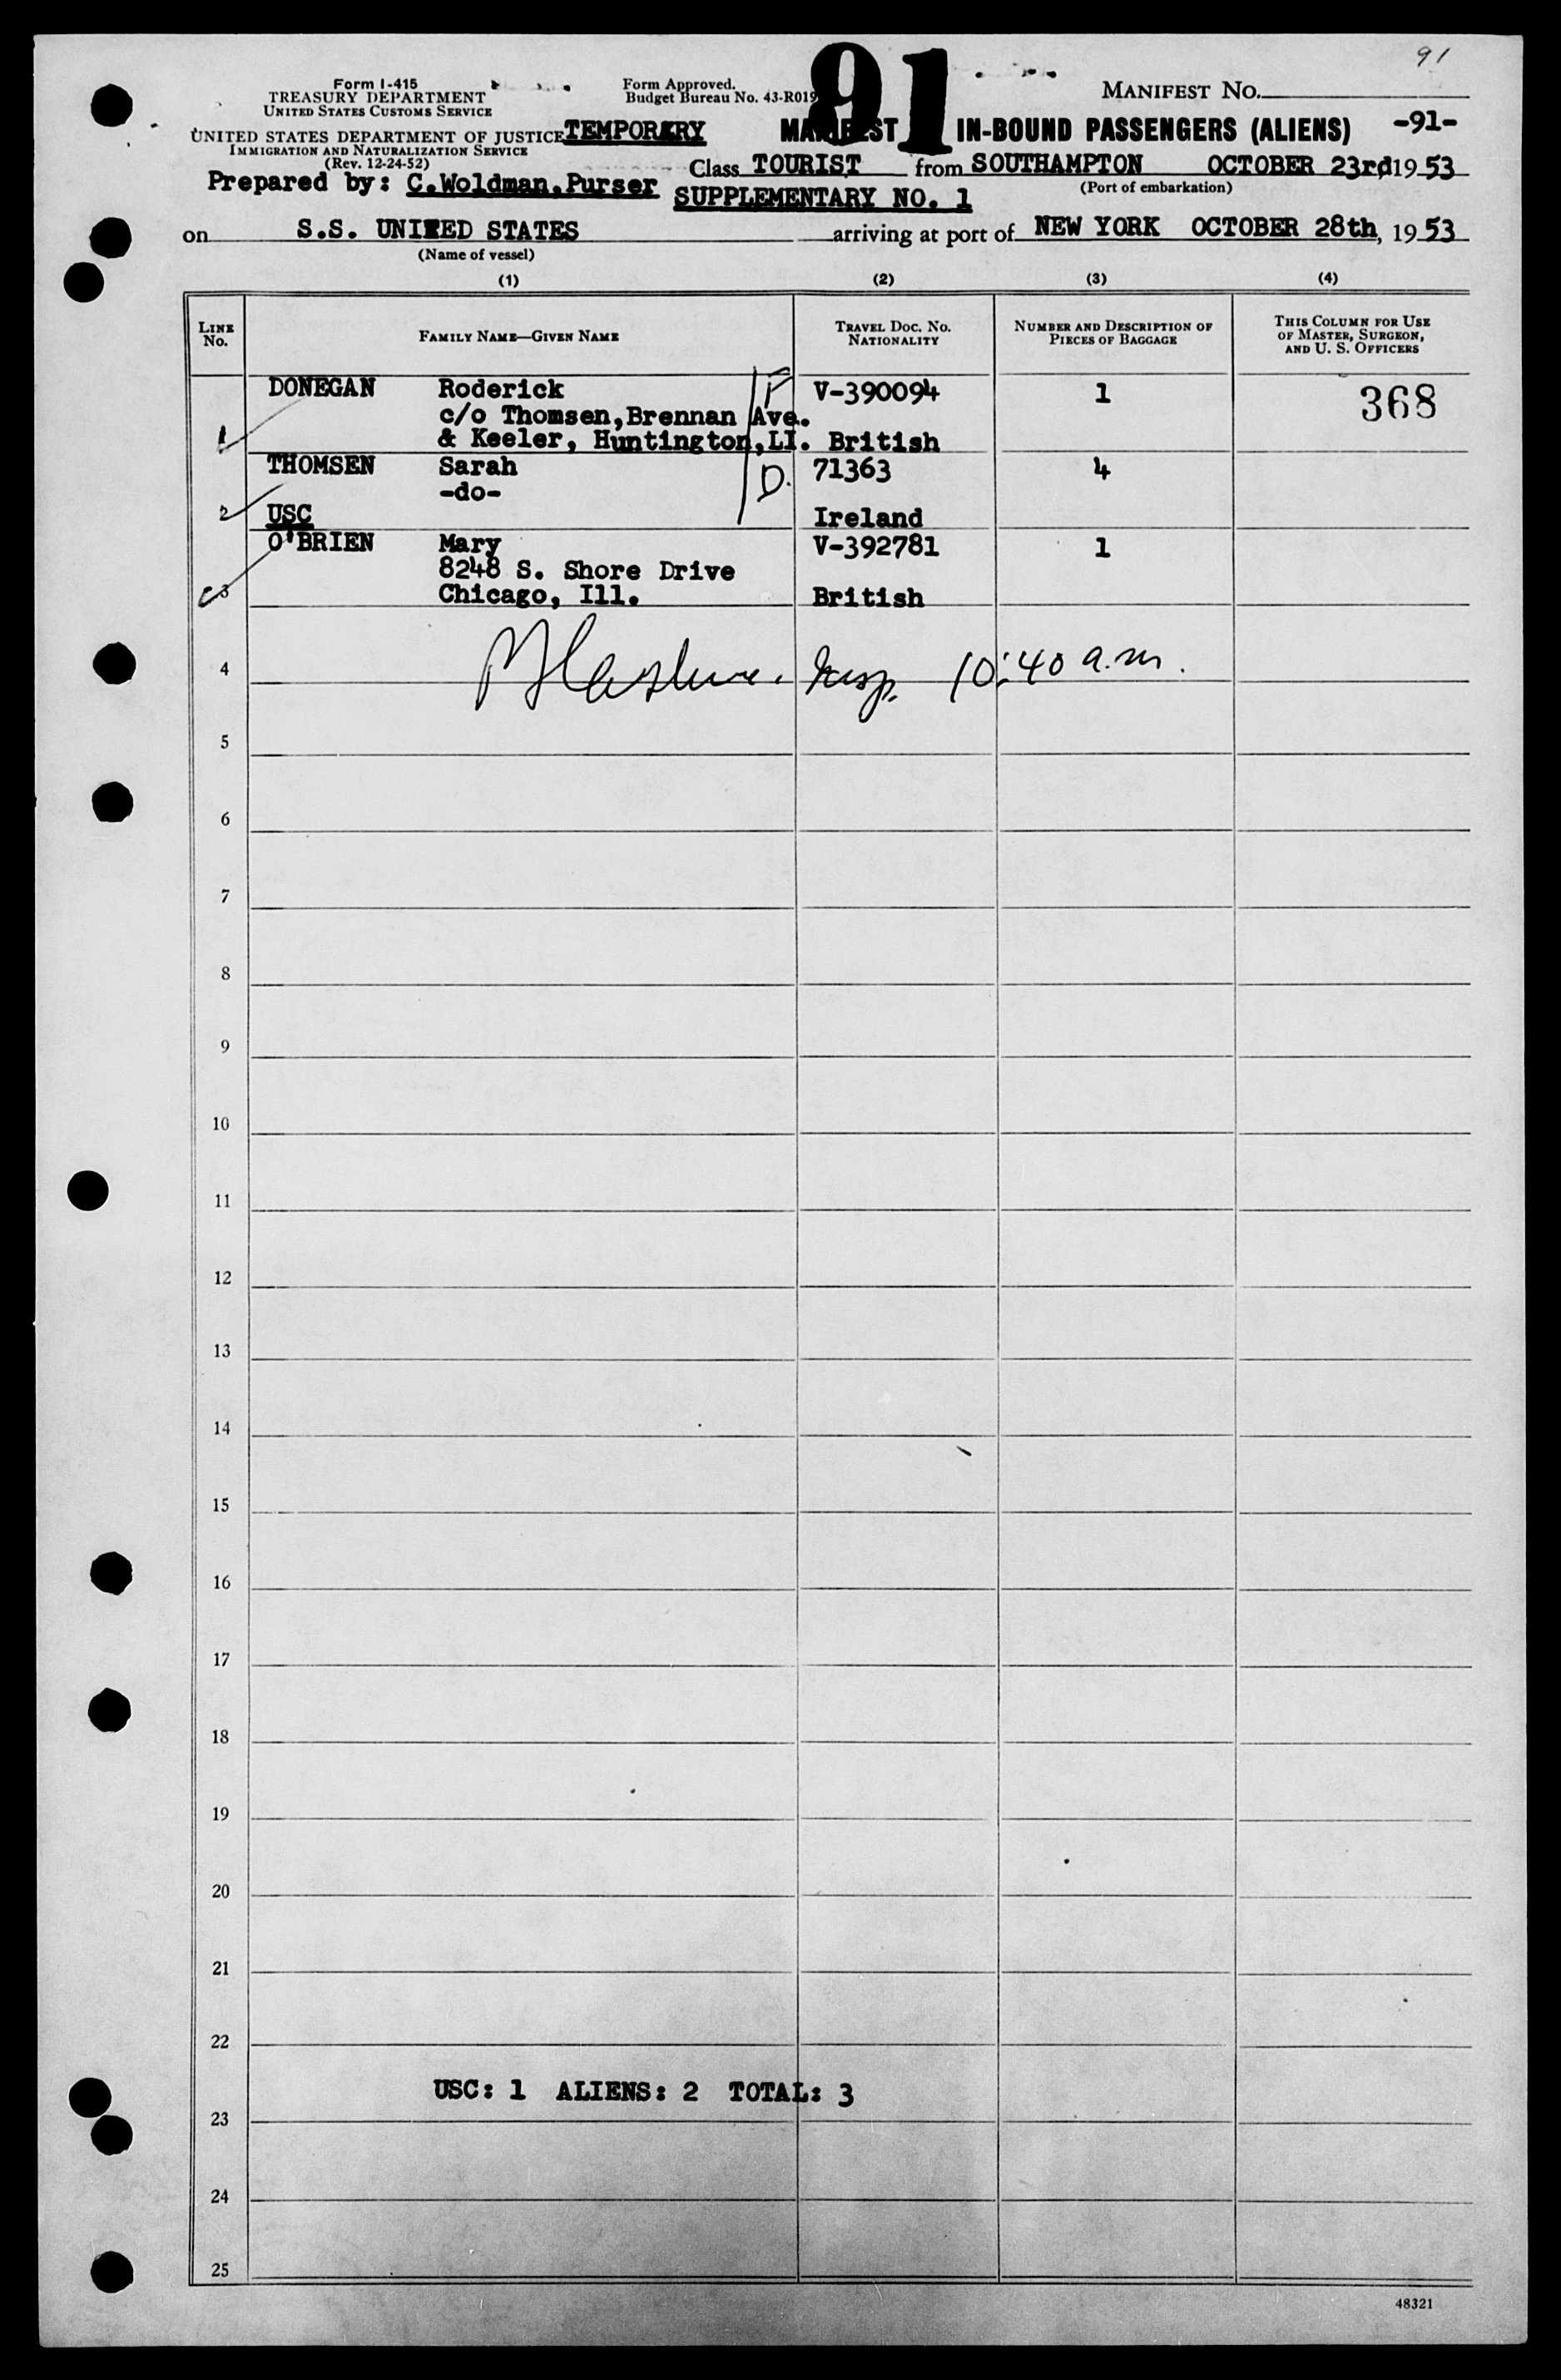 91
Form I-415
TREASURY DEPARTMENT
UNITED STATES CUSTOMS SERVICE
UNITED STATES DEPARTMENT OF JUSTICE
IMMIGRATION AND NATURALIZATION SERVICE
(Rev. 12-24-52)
Form Approved.
Budget Bureau No. 43-R019
91
MANIFEST No.
-91-
TEMPORARY
IN-BOUND PASSENGERS (ALIENS)
Prepared by: C.Woldman,Purser
Class TOURIST from SOUTHAMPTON OCTOBER 23rd, 1953
(Port of embarkation)
SUPPLEMENTARY NO. 1
on S.S. UNITED STATES arriving at port of NEW YORK OCTOBER 28th, 1953
(Name of vessel)
(1) (2) (3) (4)
LINE No. FAMILY NAME—GIVEN NAME TRAVEL DOC. NO. NATIONALITY NUMBER AND DESCRIPTION OF PIECES OF BAGGAGE THIS COLUMN FOR USE OF MASTER, SURGEON, AND U. S. OFFICERS
DONEGAN Roderick F V-390094 1 368
c/o Thomsen,Brennan Ave.
1 & Keeler, Huntington,LI. British
THOMSEN Sarah D. 71363 4
-do-
2 USC Ireland
O'BRIEN Mary V-392781 1
8248 S. Shore Drive
3 Chicago, Ill. British
4 Insp. 10:40 a.m.
5
6
7
8
9
10
11
12
13
14
15
16
17
18
19
20
21
22
USC: 1 ALIENS: 2 TOTAL: 3
23
24
25
48321